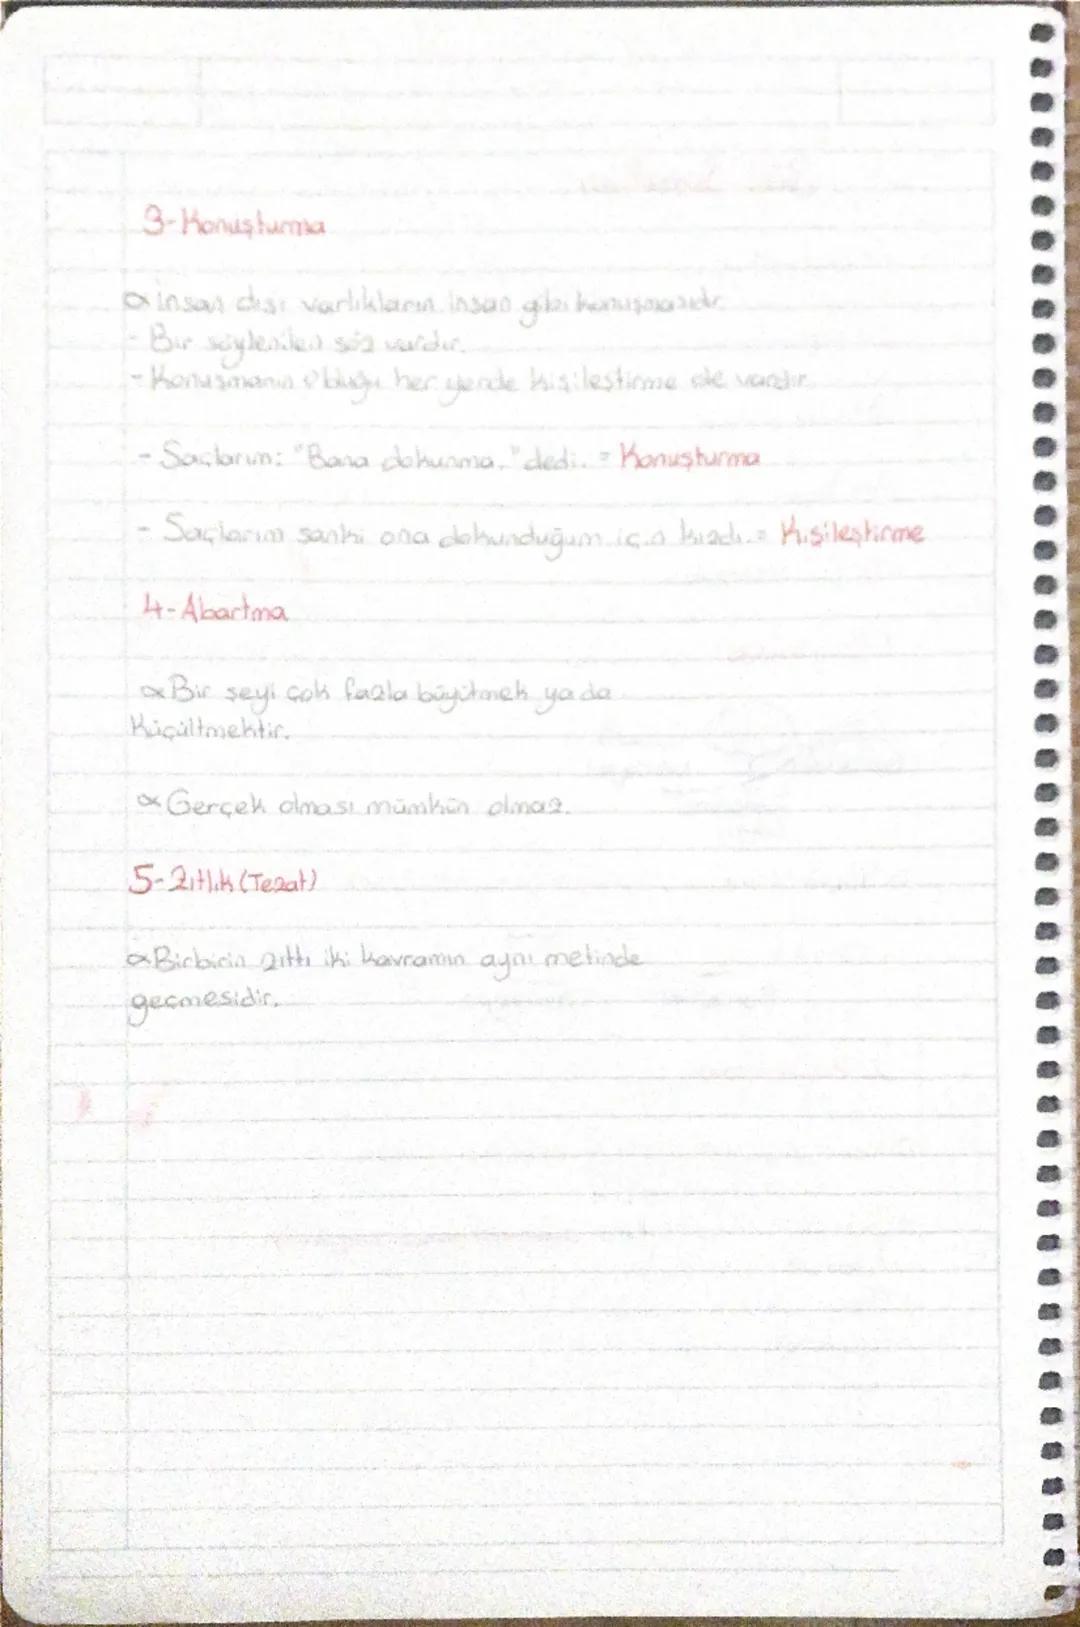 3-Konuşturma
∝ insan dışı varlıkların insan gibi konuşmasıdır.
- Bir söylenilen söz vardır.
- Konuşmanın olduğu her yerde kişileştirme de vardır.
- Saçlarım: "Bana dokunma." dedi. = Konuşturma
- Saçlarım sanki ona dokunduğum için kızdı. = Kişileştirme
4-Abartma
∝ Bir şeyi çok fazla büyütmek ya da
Küçültmektir.
∝ Gerçek olması mümkün olmaz.
5-Zıtlık (Tezat)
∝ Birbirin zıttı iki kavramın aynı metinde
geçmesidir.